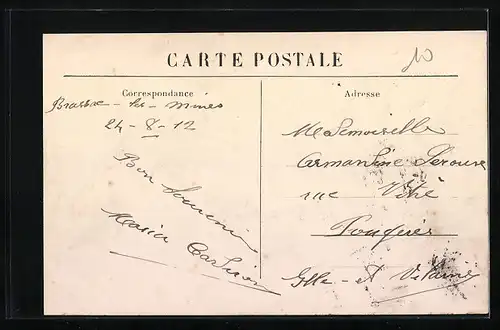 10
CARTE POSTALE
Correspondance
Brassac-les-mines
24-8-12
Bon Souvenir
Maria
Adresse
Mademoiselle
Armantine
rue Vitré
Fougères
Ille-et Vilaine